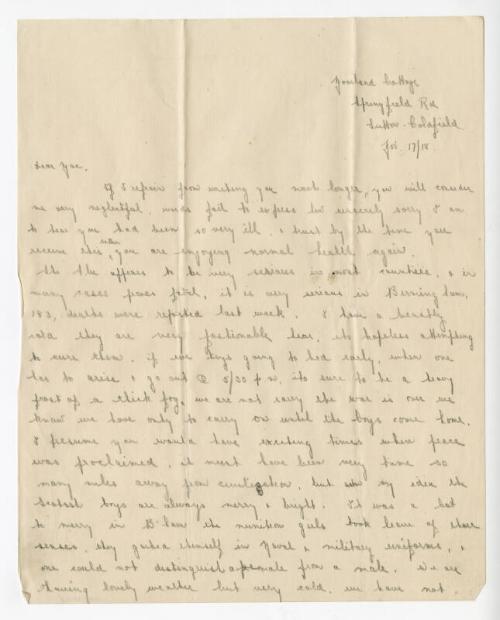 Cottage
Springfield Rd
Sutton-Coldfield
17/18
Dear Zoe.
If I refrain from writing you much longer, you will consider
me very neglectful, words fail to express how sincerely sorry I am
to hear you had been so very ill, I trust by the time you
receive this, you are enjoying normal health again.
the flu appears to be very serious in most countries, & in
many cases proves fatal, it is very serious in Birmingham,
183, deaths were reported last week. I have a beastly
cold they are very fashionable here, its hopeless attempting
to cure them. if one tries going to bed early, when one
has to arise & go out @ 5/30 a.m. its sure to be a heavy
frost or a thick fog, we are not sorry the war is over we
know we have only to carry on until the boys come home.
I presume you would have exciting times when peace
was proclaimed, it must have been very tame so
many miles away from civilization, but my idea the
Scotch boys are always merry & bright. It was a bit
to merry in B'ham the munition girls took leave of their
senses, they garbed themself in Naval & military uniforms, &
one could not distinguish a female from a male. We are
having lovely weather but very cold. we have not